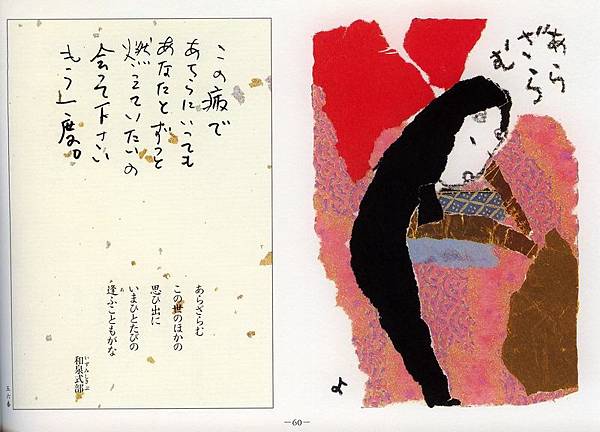 この疲で
あちらにいっても
あなたとずっと
燃えていたいの
会って下さい
もう一度。
あらざらむ
この世のほかの
思ひ出に
いまひとたびの
逢ふこともがな
和泉式部
いずみしきぶ
五六番
あら
ざら
む
よ
—60—